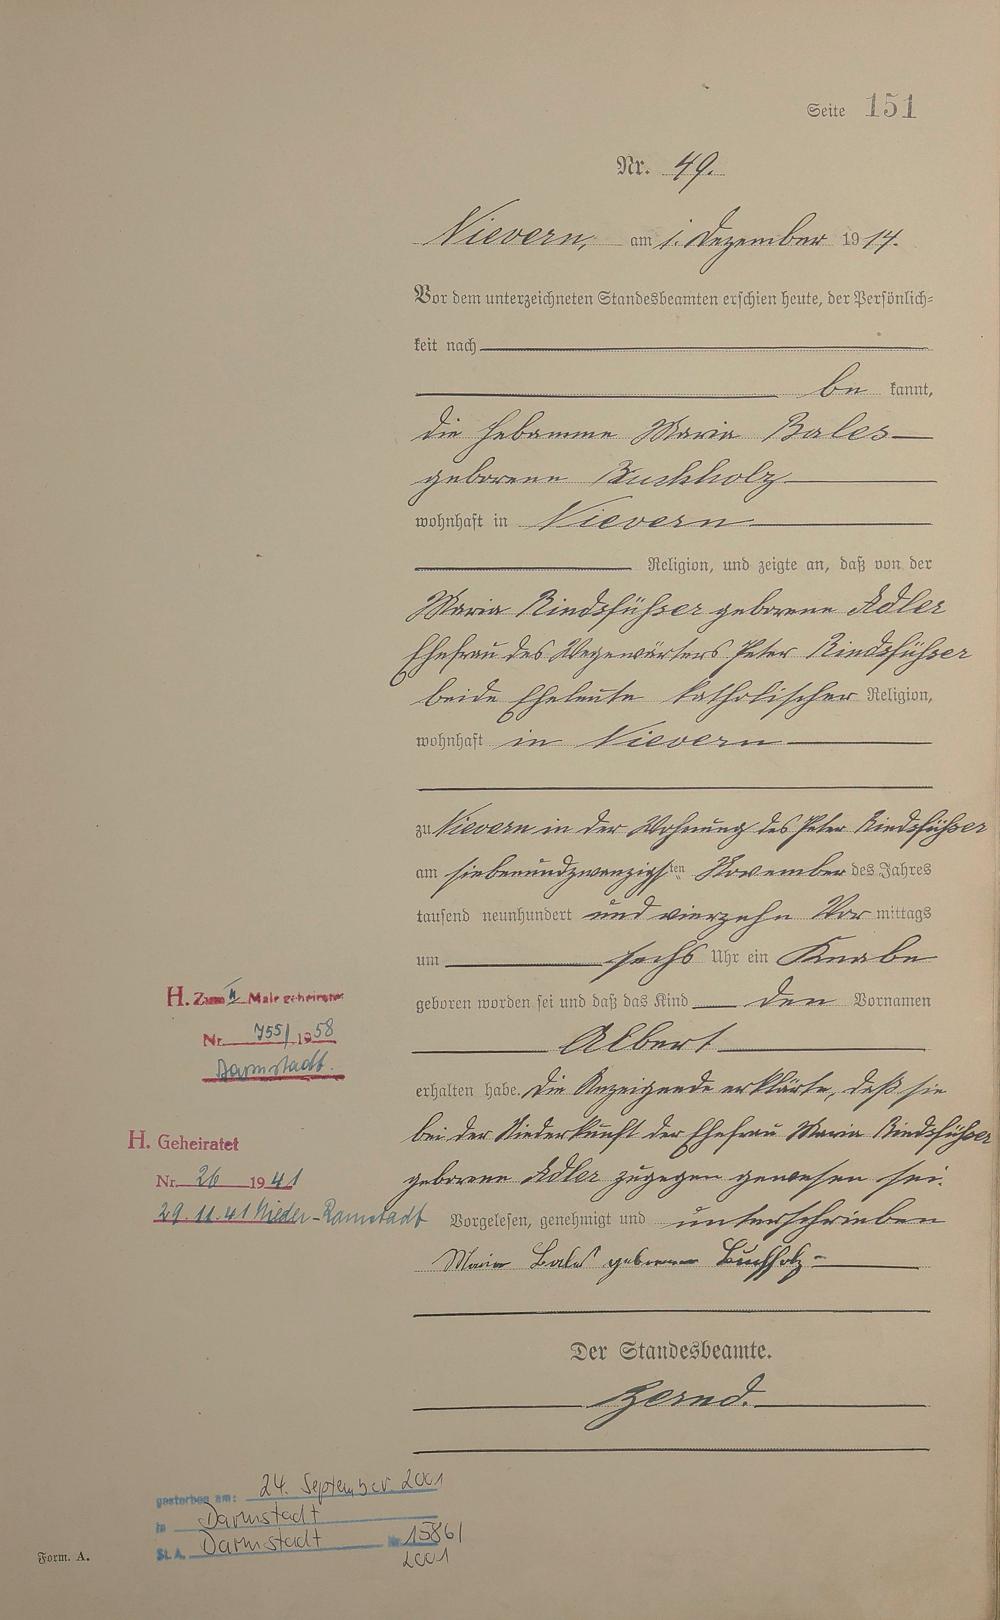 Seite 151
Nr. 49.
Nievern, am 1. Dezember 1914.
Vor dem unterzeichneten Standesbeamten erschien heute, der Persönlich-
keit nach
be kannt,
die Hebamme Maria Bales
geborene Buchholz
wohnhaft in Nievern
Religion, und zeigte an, daß von der
Maria Rindsfüßer geborene Adler
Ehefrau des Wegewärters Peter Rindsfüßer
beide Eheleute katholischer Religion,
wohnhaft in Nievern
zu Nievern in der Wohnung des Peter Rindsfüßer
am siebenundzwanzigsten November des Jahres
tausend neunhundert und vierzehn Vor mittags
um sechs Uhr ein Knabe
geboren worden sei und daß das Kind den Vornamen
Albert
erhalten habe. Die Anzeigende erklärte, daß sie
bei der Niederkunft der Ehefrau Maria Rindsfüßer
geborene Adler zugegen gewesen sei.
Vorgelesen, genehmigt und unterschrieben
Maria Bales geborene Buchholz
Der Standesbeamte.
Bernd.
H. Zum II Male geheiratet
Nr. 755/1958
Darmstadt.
H. Geheiratet
Nr. 26 1941
29.11.41 Nieder-Ramstadt
gestorben am: 24. September 2001
in Darmstadt
St. A. Darmstadt Nr. 1586/
2001
Form. A.